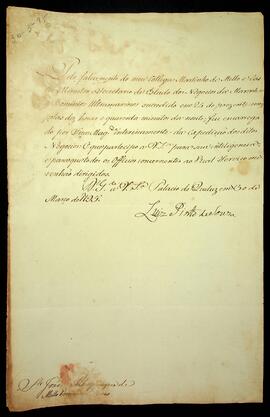 Pelo falecimento do meu Collega Martinho de Mello e Castro
Ministro e Secretario de Estado dos Negocios da Marinha e
Dominios Ultramarinos succedido em 24 do prezente mez
pelas dez horas e quarenta minutos da noute: fui encarregado
por Sua Mag.de interinamente da expedição dos ditos
Negocios: O que participo a V. S.a para sua intelligencia
e para que todos os Officios concernentes ao Real Serviço me
sejão dirigidos.
D. G.e a V. S.a Palacio de Queluz em 30 de
Março de 1795.
Luiz Pinto de Souza
Mello